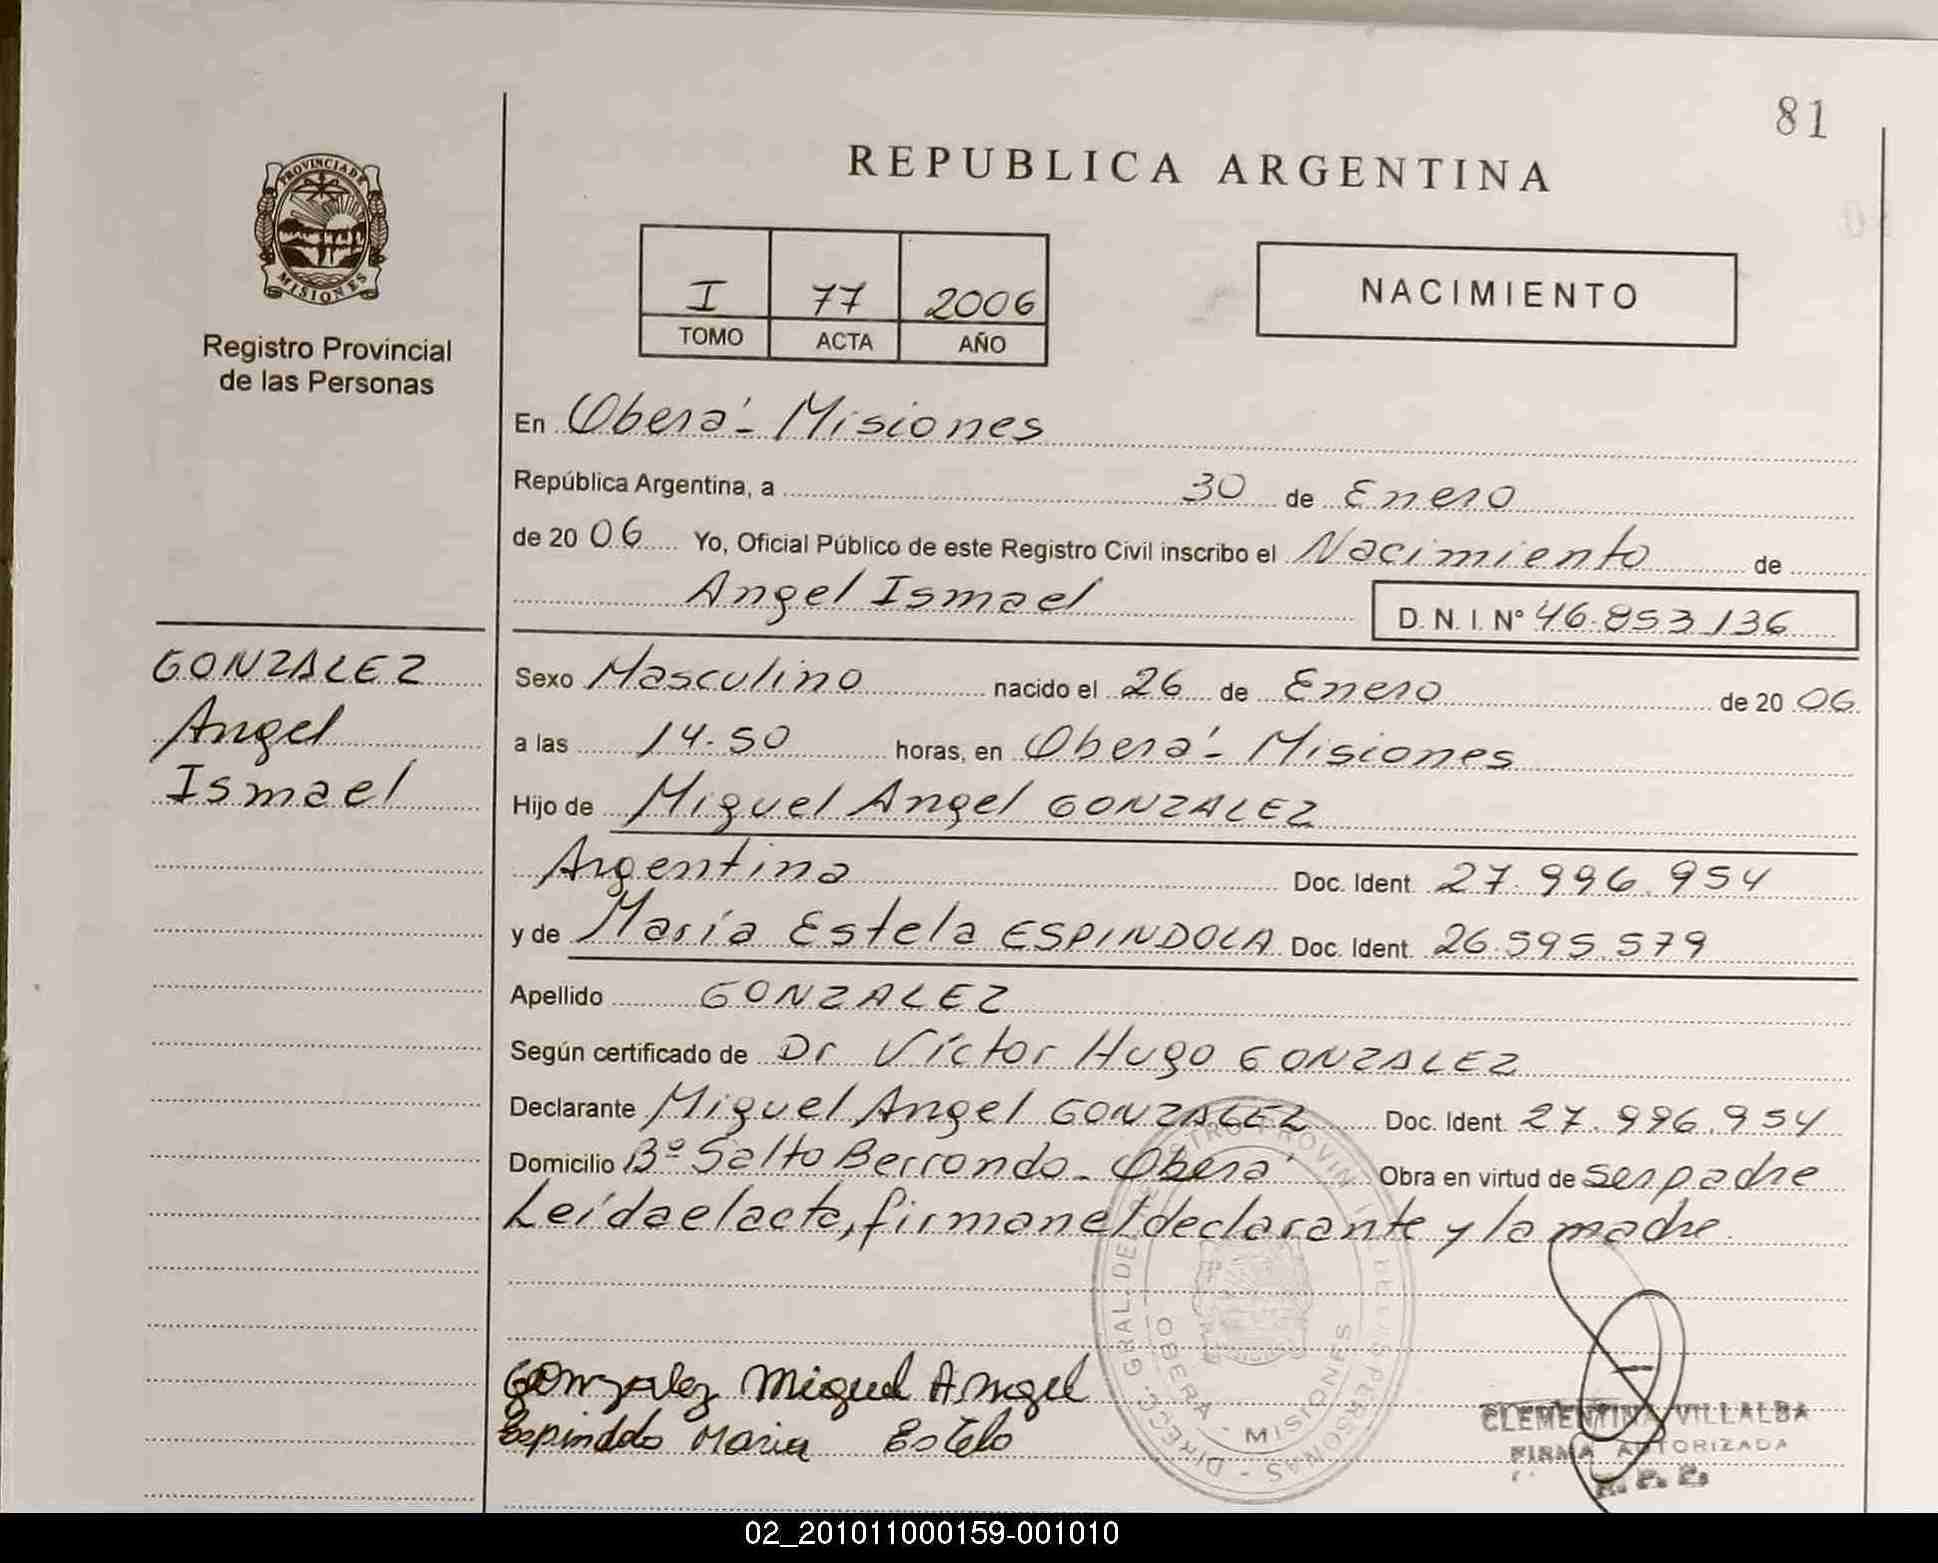 81
REPUBLICA ARGENTINA
PROVINCIA DE
MISIONES
Registro Provincial
de las Personas
I 77 2006
TOMO ACTA AÑO
NACIMIENTO
En Oberá - Misiones
República Argentina, a 30 de Enero
de 20 06 Yo, Oficial Público de este Registro Civil inscribo el Nacimiento de
Angel Ismael D. N. I. N° 46.853.136
GONZALEZ
Angel
Ismael
Sexo Masculino nacido el 26 de Enero de 20 06
a las 14.50 horas, en Oberá - Misiones
Hijo de Miguel Angel GONZALEZ
Argentina Doc. Ident. 27.996.954
y de María Estela ESPINDOLA Doc. Ident. 26.595.579
Apellido GONZALEZ
Según certificado de Dr Víctor Hugo GONZALEZ
Declarante Miguel Angel GONZALEZ Doc. Ident. 27.996.954
Domicilio Bº Salto Berrondo - Oberá Obra en virtud de ser padre
Leída el acta, firman el declarante y la madre.
Gonzalez Miguel Angel
Espindola Maria Estela
OBERA - MISIONES
CLEMENTINA VILLALBA
FIRMA AUTORIZADA
R. P. P.
02_201011000159-001010